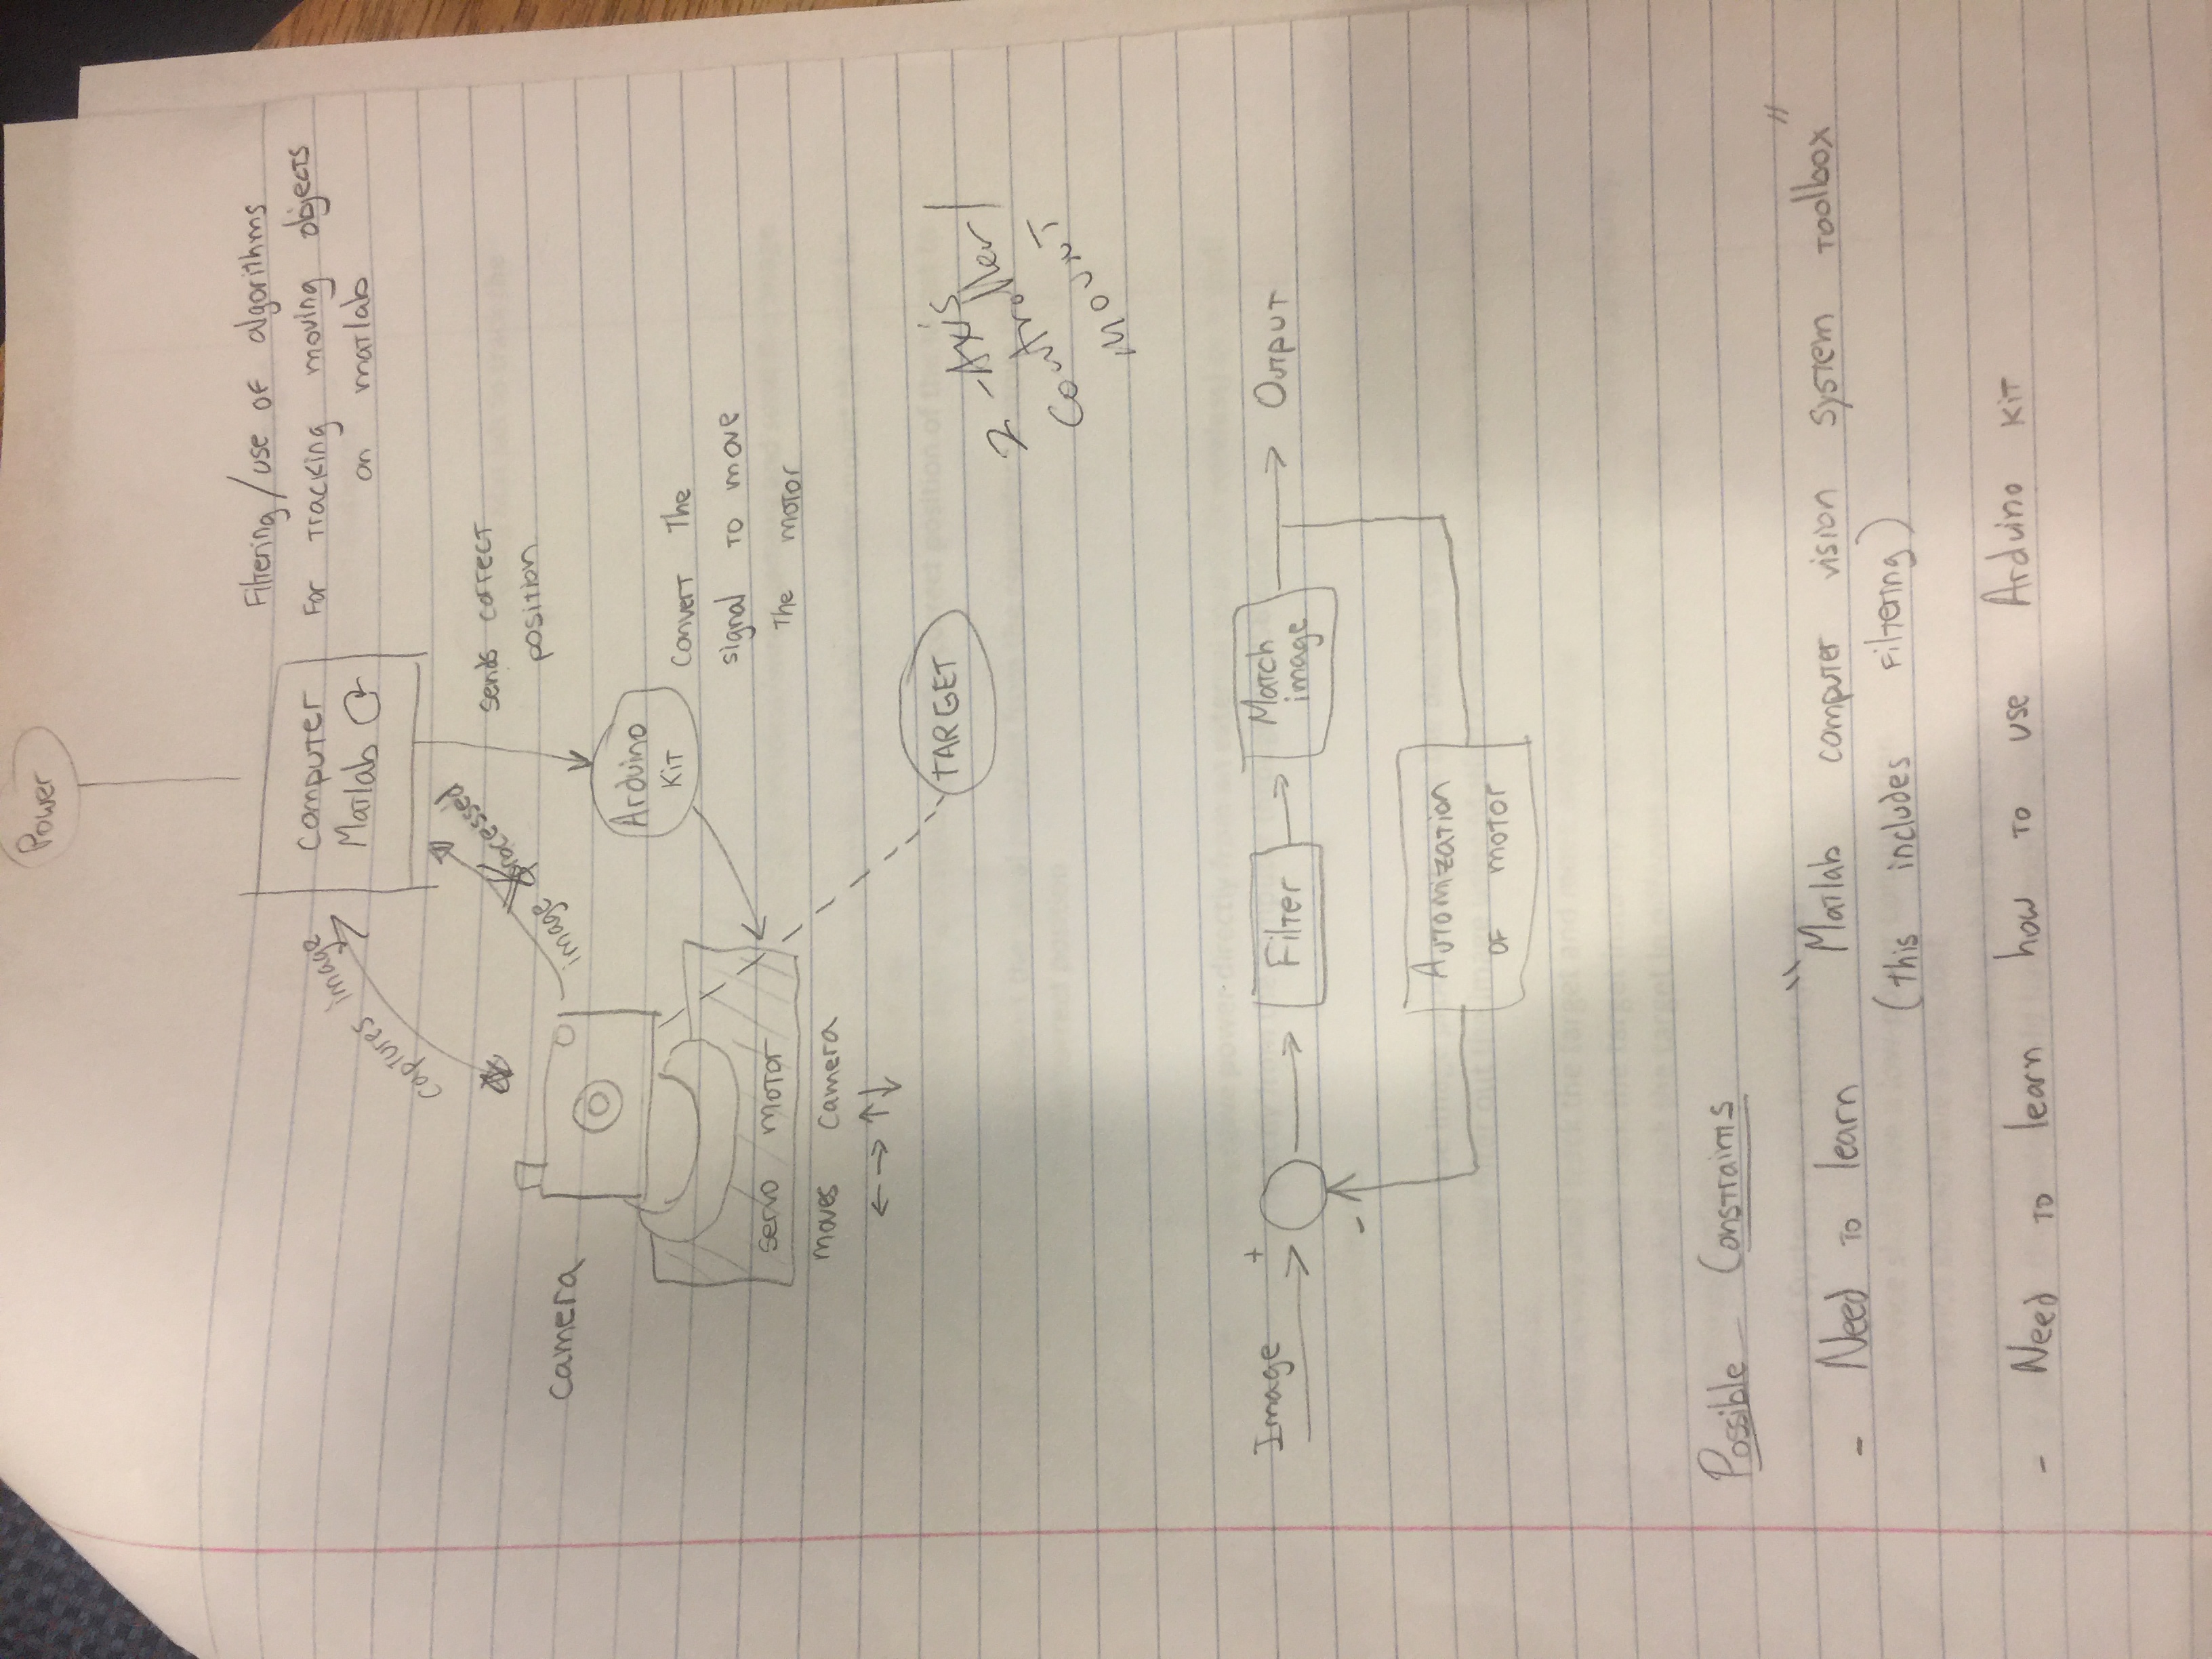 Power
Filtering/use of algorithms
for tracking moving objects
on matlab
computer
Matlab
captures image
image processed
sends correct
position
camera
Arduino
Kit
convert the
signal to move
the motor
servo motor
moves camera
TARGET
2-Axis
Controller/
Mount
Image
+
Filter
Match
image
Output
-
Automization
of motor
Possible Constraints
- Need to learn "Matlab computer vision system toolbox"
(this includes filtering)
- Need to learn how to use Arduino kit